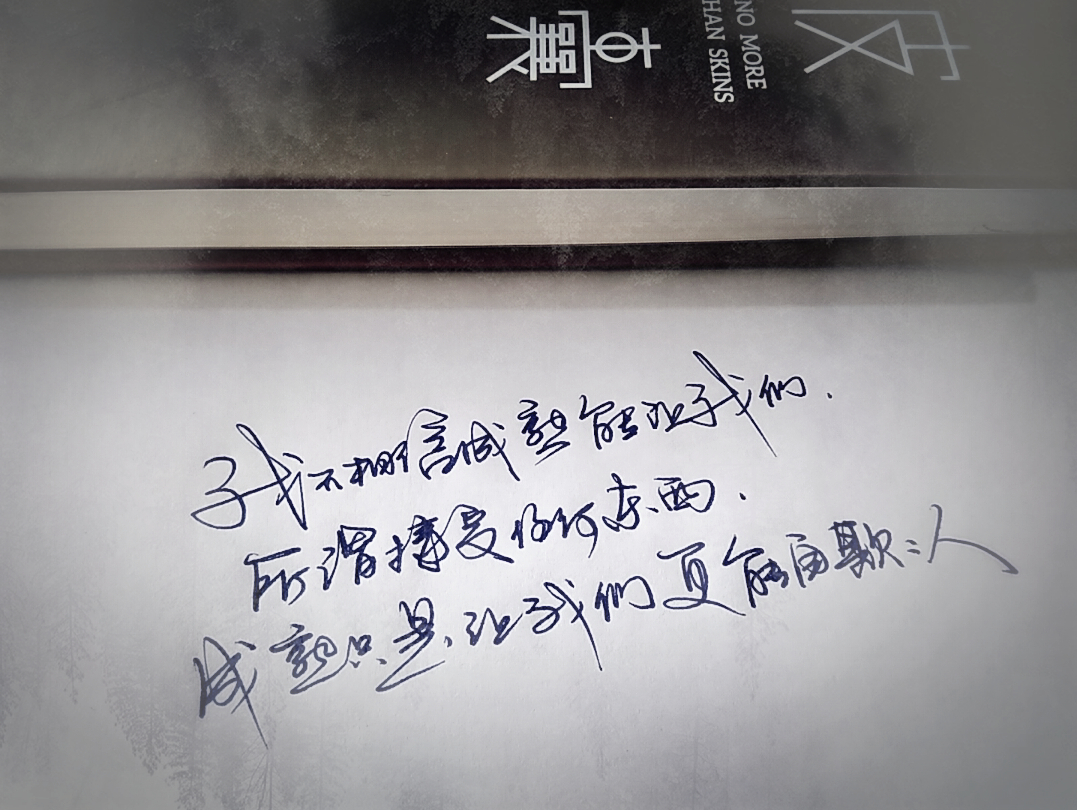 皮囊
NO MORE
HAN SKINS
我不相信成熟能让我们.
所谓接受任何东西.
成熟只是让我们更能自欺::人